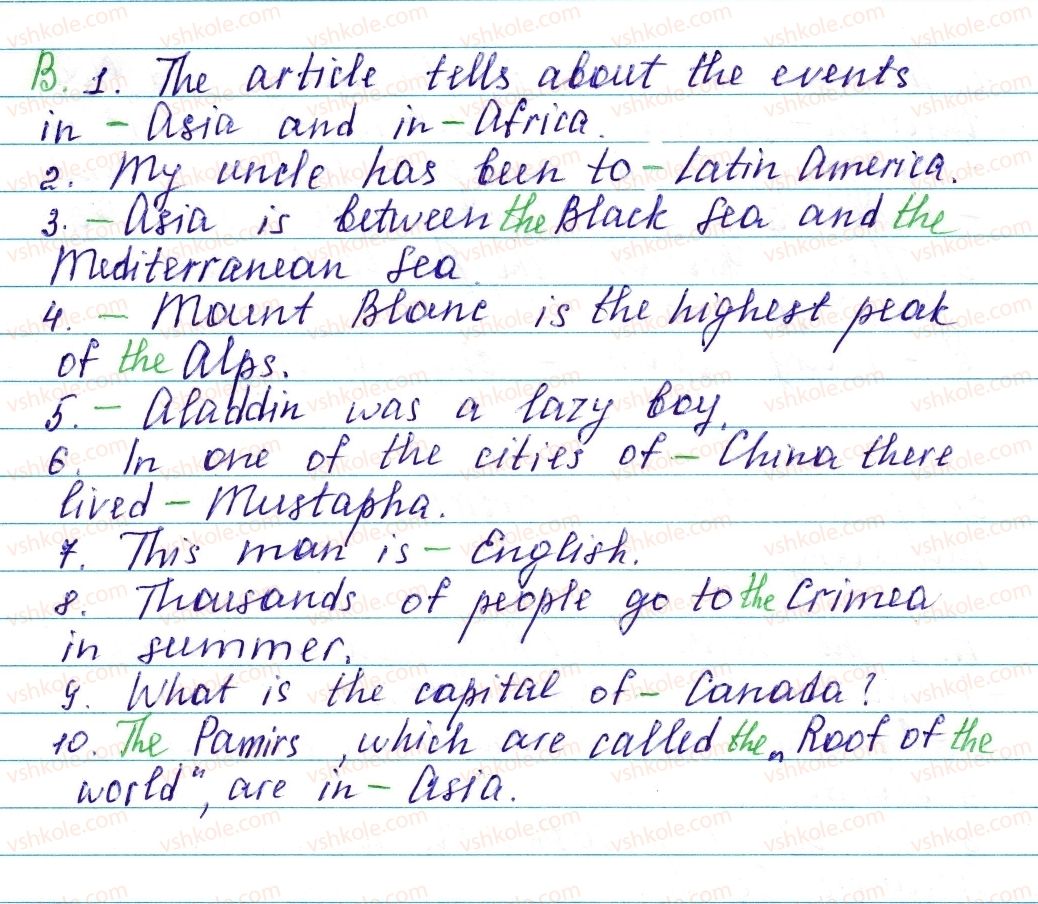 B. 1. The article tells about the events
in – Asia and in – Africa.
2. My uncle has been to – Latin America.
3. – Asia is between the Black Sea and the
Mediterranean Sea
4. – Mount Blanc is the highest peak
of the Alps.
5. – Aladdin was a lazy boy.
6. In one of the cities of – China there
lived – Mustapha.
7. This man is – English.
8. Thousands of people go to the Crimea
in summer.
9. What is the capital of – Canada?
10. The Pamirs, which are called the „Roof of the
world", are in – Asia.